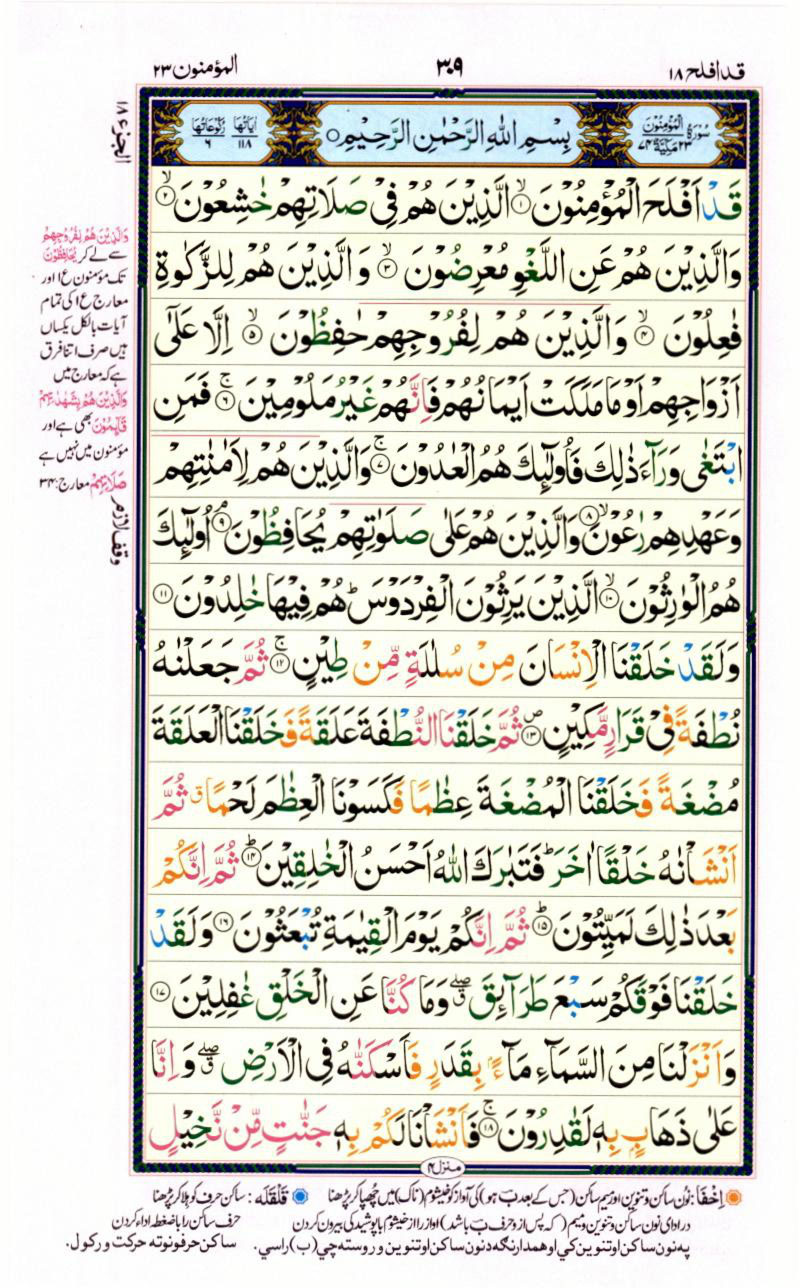 قد افلح ۱۸
۳۰۹
المؤمنون ۲۳
الجزء ۱۸
سُوْرَةُ الْمُؤْمِنُوْنَ ۲۳ مَكِّيَّةٌ ۷۴
بِسْمِ اللّٰهِ الرَّحْمٰنِ الرَّحِيْمِ ۝
اٰيَاتُهَا ۱۱۸
رُكُوْعَاتُهَا ۶
قَدْ اَفْلَحَ الْمُؤْمِنُوْنَ ۙ‏﴿۱﴾ الَّذِيْنَ هُمْ فِيْ صَلَاتِهِمْ خٰشِعُوْنَ ۙ‏﴿۲﴾
وَالَّذِيْنَ هُمْ عَنِ اللَّغْوِ مُعْرِضُوْنَ ۙ‏﴿۳﴾ وَالَّذِيْنَ هُمْ لِلزَّكٰوةِ
فٰعِلُوْنَ ۙ‏﴿۴﴾ وَالَّذِيْنَ هُمْ لِفُرُوْجِهِمْ حٰفِظُوْنَ ۙ‏﴿۵﴾ اِلَّا عَلٰٓى
اَزْوَاجِهِمْ اَوْ مَا مَلَكَتْ اَيْمَانُهُمْ فَاِنَّهُمْ غَيْرُ مَلُوْمِيْنَ ۚ‏﴿۶﴾ فَمَنِ
ابْتَغٰى وَرَآءَ ذٰلِكَ فَاُولٰٓئِكَ هُمُ الْعٰدُوْنَ ۚ‏﴿۷﴾ وَالَّذِيْنَ هُمْ لِاَمٰنٰتِهِمْ
وَعَهْدِهِمْ رٰعُوْنَ ۙ‏﴿۸﴾ وَالَّذِيْنَ هُمْ عَلٰى صَلَوٰتِهِمْ يُحَافِظُوْنَ ۘ‏﴿۹﴾ اُولٰٓئِكَ
هُمُ الْوٰرِثُوْنَ ۙ‏﴿۱۰﴾ الَّذِيْنَ يَرِثُوْنَ الْفِرْدَوْسَ ؕ هُمْ فِيْهَا خٰلِدُوْنَ ‏﴿۱۱﴾
وَلَقَدْ خَلَقْنَا الْاِنْسَانَ مِنْ سُلٰلَةٍ مِّنْ طِيْنٍ ۚ‏﴿۱۲﴾ ثُمَّ جَعَلْنٰهُ
نُطْفَةً فِيْ قَرَارٍ مَّكِيْنٍ ۪‏﴿۱۳﴾ ثُمَّ خَلَقْنَا النُّطْفَةَ عَلَقَةً فَخَلَقْنَا الْعَلَقَةَ
مُضْغَةً فَخَلَقْنَا الْمُضْغَةَ عِظٰمًا فَكَسَوْنَا الْعِظٰمَ لَحْمًا ق ثُمَّ
اَنْشَاْنٰهُ خَلْقًا اٰخَرَ ؕ فَتَبٰرَكَ اللّٰهُ اَحْسَنُ الْخٰلِقِيْنَ ؕ‏﴿۱۴﴾ ثُمَّ اِنَّكُمْ
بَعْدَ ذٰلِكَ لَمَيِّتُوْنَ ؕ‏﴿۱۵﴾ ثُمَّ اِنَّكُمْ يَوْمَ الْقِيٰمَةِ تُبْعَثُوْنَ ‏﴿۱۶﴾ وَلَقَدْ
خَلَقْنَا فَوْقَكُمْ سَبْعَ طَرَآئِقَ ۖ ق وَمَا كُنَّا عَنِ الْخَلْقِ غٰفِلِيْنَ ‏﴿۱۷﴾
وَاَنْزَلْنَا مِنَ السَّمَآءِ مَآءًۢ بِقَدَرٍ فَاَسْكَنّٰهُ فِي الْاَرْضِ ۖ ق وَاِنَّا
عَلٰى ذَهَابٍۭ بِهٖ لَقٰدِرُوْنَ ۚ‏﴿۱۸﴾ فَاَنْشَاْنَا لَكُمْ بِهٖ جَنّٰتٍ مِّنْ نَّخِيْلٍ
منزل ۴
وَالَّذِيْنَ هُمْ لِفُرُوْجِهِمْ
سے لے کر يُحَافِظُوْنَ
تک مؤمنون ع۱ اور
معارج ع۱ کی تمام
آیات بالکل یکساں
ہیں صرف اتنا فرق
ہے کہ معارج میں
وَالَّذِيْنَ هُمْ بِشَهٰدٰتِهِمْ
قَآئِمُوْنَ بھی ہے اور
مؤمنون میں نہیں ہے
صَلَاتِهِمْ معارج: ۳۴
وقف لازم
اِخفَا: نُون ساکن و تنوین اور میم ساکن (جس کے بعد بَ ہو) کی آواز کو خیشوم (ناک) میں چُھپا کر پڑھنا
قَلْقَلَه: ساکن حرف کو ہلا کر پڑھنا
در ادای نون ساکن و تنوین و میم (که پس از و حرف ب باشد) اواز را از خیشوم با پوشیدگی بیرون کردن
حرف ساکن را با ضغطه اداء کردن
په نون ساکن او تنوین کي او همدارنګه د نون ساکن او تنوین و روسته چي (ب) راسي.
ساکن حرفو نو ته حرکت ورکول.